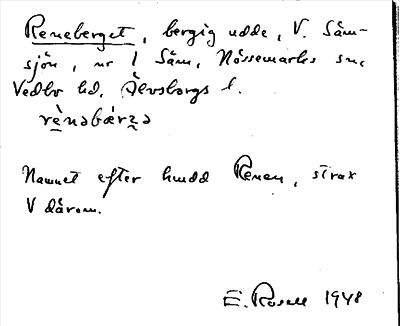 Reneberget, bergig udde, V. Säm-
sjön, nr 1 Säm, Nössemarks sn,
Vedbo hd, Älvsborgs l.
rènəbærɜə
Namnet efter hudd Renen, strax
V därom.
E. Rosell 1948